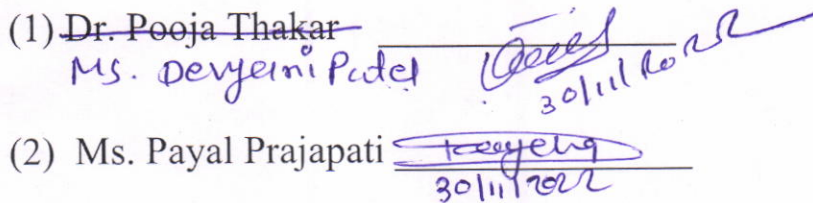 (1) Dr. Pooja Thakar
Ms. Devyani Patel
30/11/2022
(2) Ms. Payal Prajapati
30/11/2022